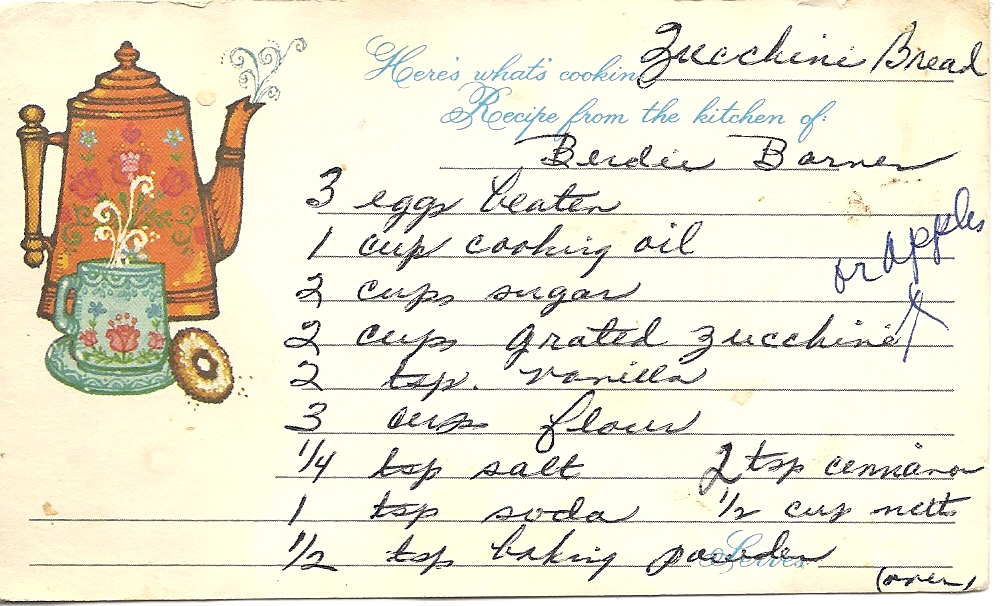 Here's what's cookin Zucchini Bread
Recipe from the kitchen of:
Berdie Barnes
3 eggs beaten
1 cup cooking oil
or apples
2 cups sugar
2 cups grated zucchini
2 tsp. vanilla
3 cups flour
1/4 tsp salt 2 tsp cennamon
1 tsp soda 1/2 cup nutts
1/2 tsp baking powder
Serves
(over)